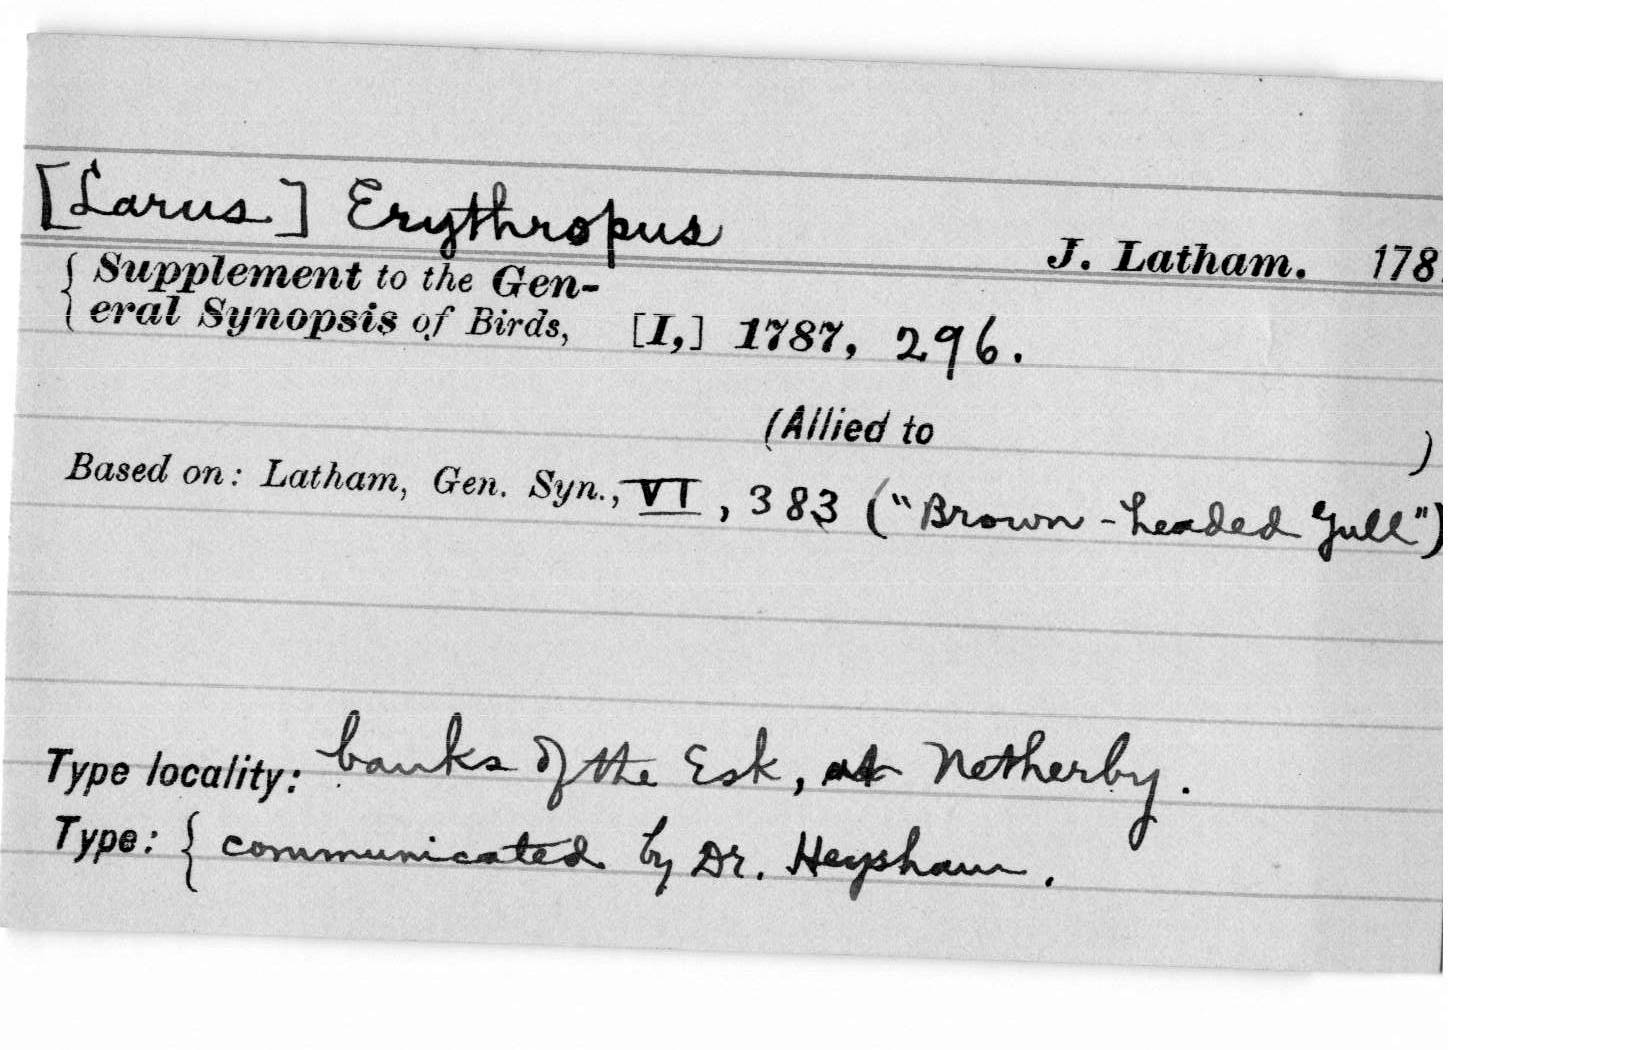 [Larus] Erythropus
J. Latham. 178
{ Supplement to the Gen-
eral Synopsis of Birds, [I,] 1787, 296.
(Allied to )
Based on: Latham, Gen. Syn., VI, 383 ("Brown-headed Gull")
Type locality: banks of the Esk, at Netherby.
Type: { communicated by Dr. Heysham.